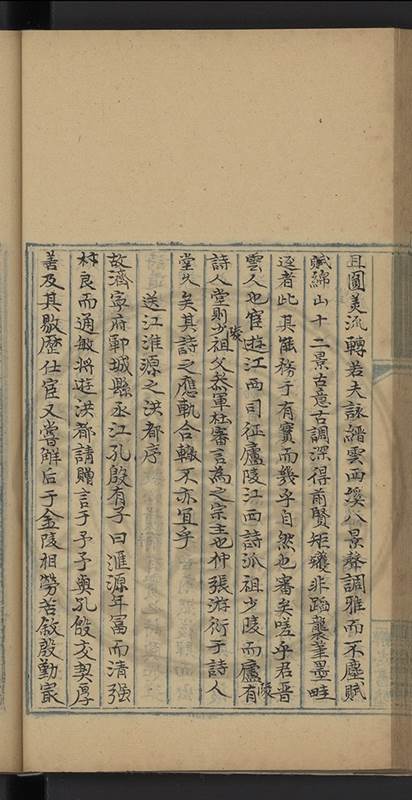 且圓美流轉若夫詠縉雲西溪八景聲調雅而不塵賦
賦綿山十二景古意古調深得前賢矩矱非蹈襲筆墨畦
逕者此其區務于有實而幾乎自然也審矣嗟乎君晉
雲人也宦遊江西司征廬陵江西詩派祖少陵而廬有
詩人堂則少陵祖父恭軍杜審言為之宗主也仲張游衍于詩人
堂久矣其詩之應軌合轍不亦宜乎
送江淮源之洪都序
故濟寧府鄆城縣丞江孔殷有子曰淮源年富而清强
材良而通敏將遊洪都請贈言于予予與孔殷交契厚
善及其敭歷仕宦又嘗解后于金陵相勞苦敘殷勤㝡